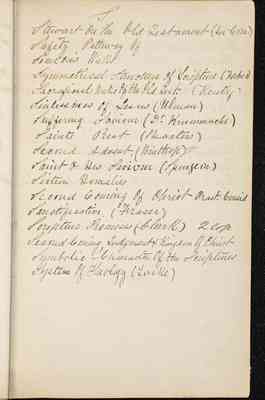 S
Stewart On the Old Testament
Safety Pathway Of
Sinclairs
Symmetrical Structure Of Scripture
Sacrificial
Sinlessness Of Jesus (Ulman)
Suffering Saviour (Dr. Krummacher)
Saints Rest (Baxters)
Second Advent (Winthrop)
Saint & His Saviour (Spurgeon)
Sixteen Homelies
Second Coming Of Christ
Sanctification (Fraser)
Scripture Promises (Clark) 2 cop
Second Coming Judgment & Kingdom Of Christ
Symbolic Character Of the Scriptures
System Of Theology